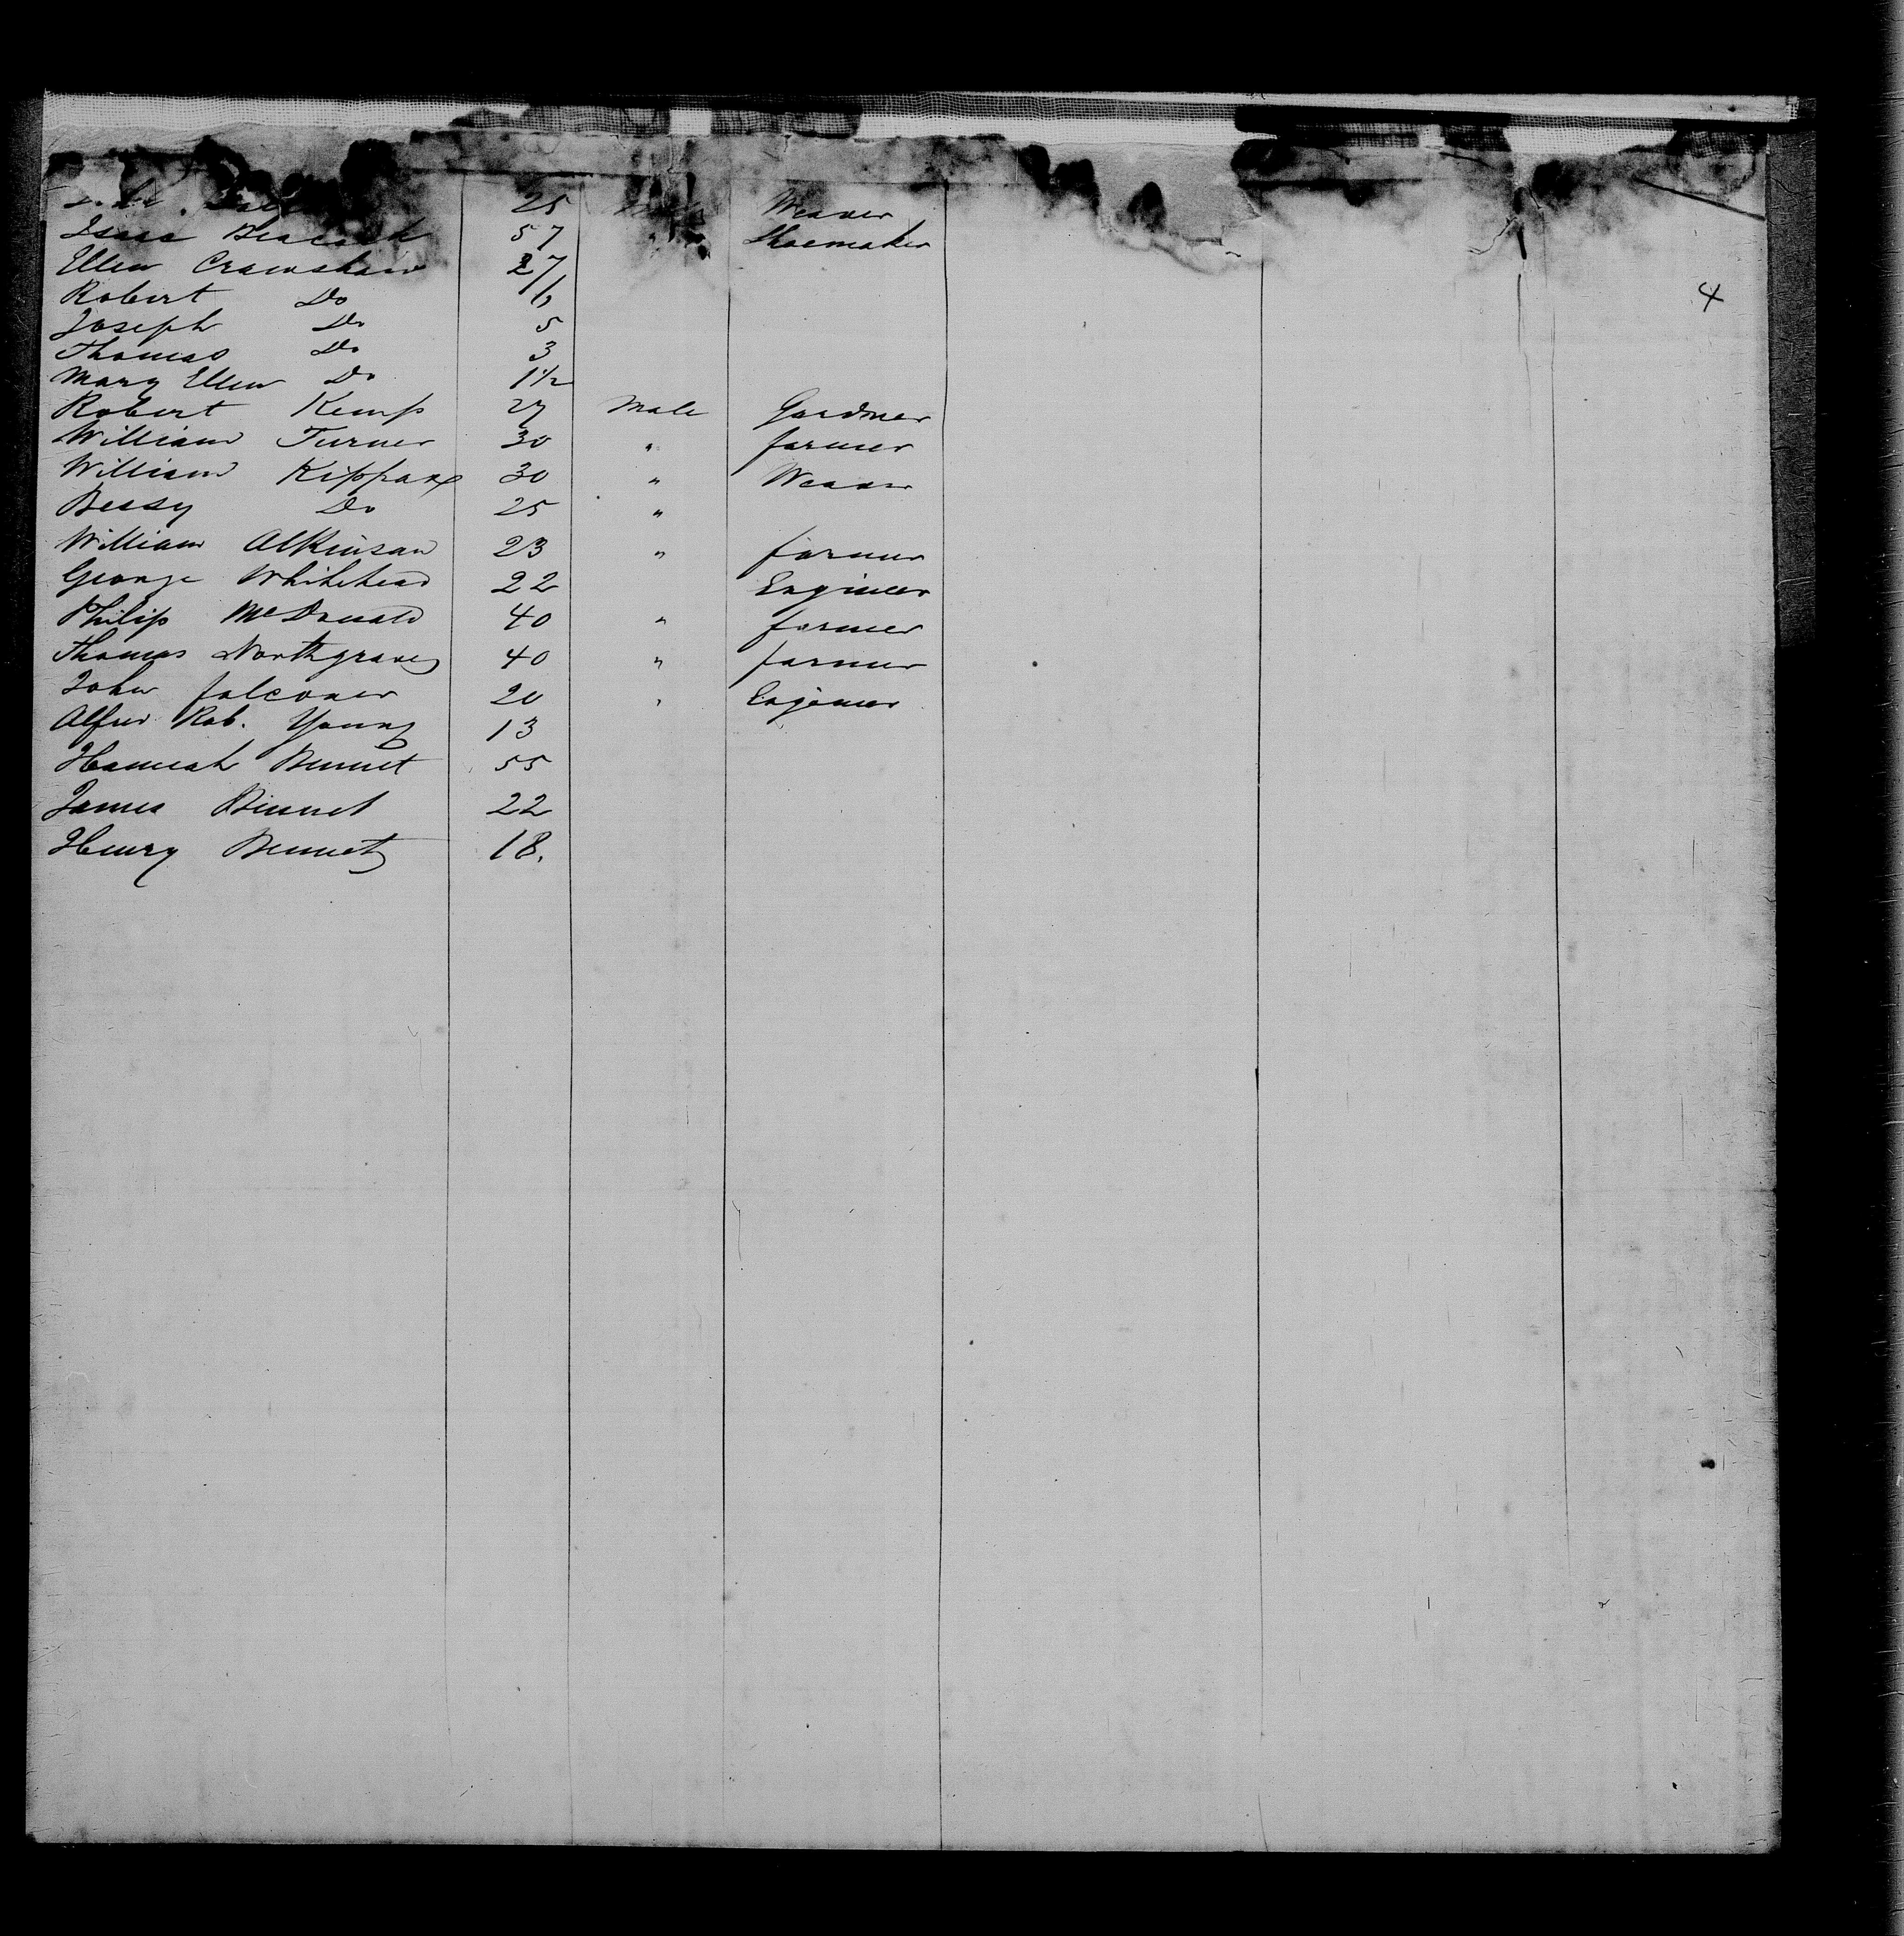 25 Weaver
Isaac 57 Shoemaker
Ellen Crawshaw 27
Robert Do 6
Joseph Do 5
Thomas Do 3
Mary Ellen Do 1½
Robert Kemp 27 Male Gardner
William Turner 30 " farmer
William Kippax 30 " Weaver
Bessy Do 25 "
William Atkinson 23 " farmer
George Whitehead 22 Engineer
Philip McDonald 40 " farmer
Thomas Northgraves 40 " farmer
John falconer 20 " Engineer
Alfred Rob. Young 13
Hannah Bennet 55
James Bennet 22
Henry Bennet 18.
4